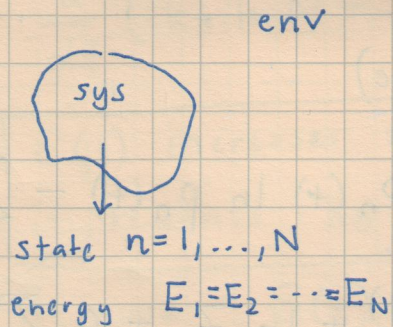 env
sys
state n=1,...,N
energy E₁=E₂=···=E_N